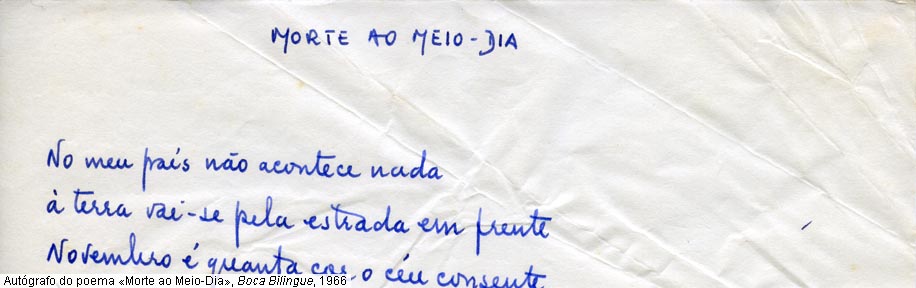 MORTE AO MEIO-DIA
No meu país não acontece nada
à terra vai-se pela estrada em frente
Novembro é quanta cor o céu consente
Autógrafo do poema «Morte ao Meio-Dia», Boca Bilingue, 1966